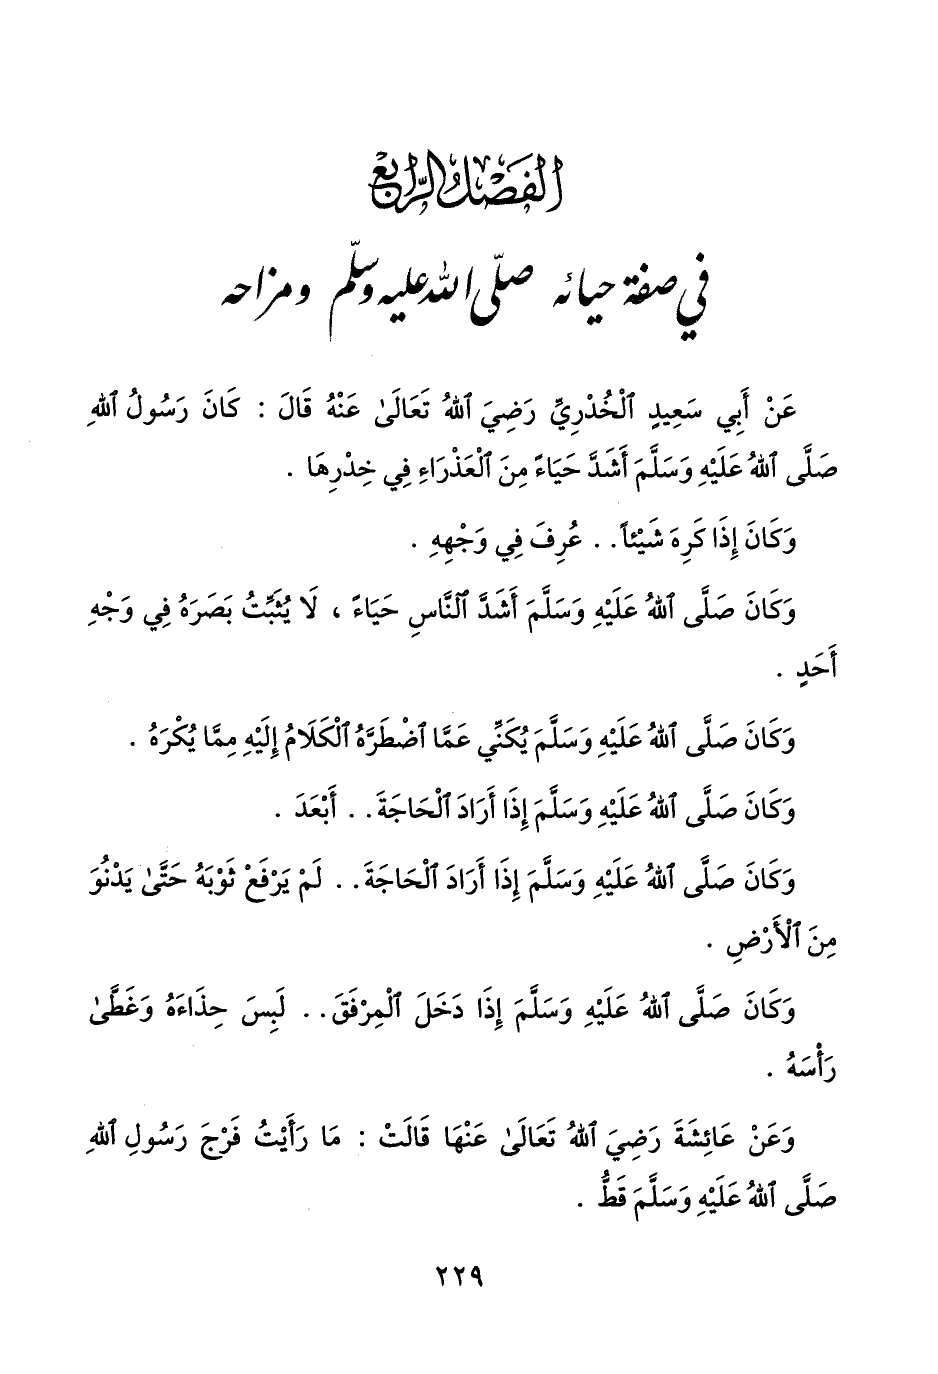 الفصل الرابع
في صفة حيائه صلّى الله عليه وسلّم ومزاحه
عَنْ أَبِي سَعِيدٍ ٱلْخُدْرِيِّ رَضِيَ ٱللهُ تَعَالَىٰ عَنْهُ قَالَ : كَانَ رَسُولُ ٱللهِ
صَلَّى ٱللهُ عَلَيْهِ وَسَلَّمَ أَشَدَّ حَيَاءً مِنَ ٱلْعَذْرَاءِ فِي خِدْرِهَا .
وَكَانَ إِذَا كَرِهَ شَيْئاً . . عُرِفَ فِي وَجْهِهِ .
وَكَانَ صَلَّى ٱللهُ عَلَيْهِ وَسَلَّمَ أَشَدَّ ٱلنَّاسِ حَيَاءً ، لَا يُثَبِّتُ بَصَرَهُ فِي وَجْهِ
أَحَدٍ .
وَكَانَ صَلَّى ٱللهُ عَلَيْهِ وَسَلَّمَ يُكَنِّي عَمَّا ٱضْطَرَّهُ ٱلْكَلَامُ إِلَيْهِ مِمَّا يُكْرَهُ .
وَكَانَ صَلَّى ٱللهُ عَلَيْهِ وَسَلَّمَ إِذَا أَرَادَ ٱلْحَاجَةَ . . أَبْعَدَ .
وَكَانَ صَلَّى ٱللهُ عَلَيْهِ وَسَلَّمَ إِذَا أَرَادَ ٱلْحَاجَةَ . . لَمْ يَرْفَعْ ثَوْبَهُ حَتَّىٰ يَدْنُوَ
مِنَ ٱلْأَرْضِ .
وَكَانَ صَلَّى ٱللهُ عَلَيْهِ وَسَلَّمَ إِذَا دَخَلَ ٱلْمِرْفَقَ . . لَبِسَ حِذَاءَهُ وَغَطَّىٰ
رَأْسَهُ .
وَعَنْ عَائِشَةَ رَضِيَ ٱللهُ تَعَالَىٰ عَنْهَا قَالَتْ : مَا رَأَيْتُ فَرْجَ رَسُولِ ٱللهِ
صَلَّى ٱللهُ عَلَيْهِ وَسَلَّمَ قَطُّ .
٢٢٩